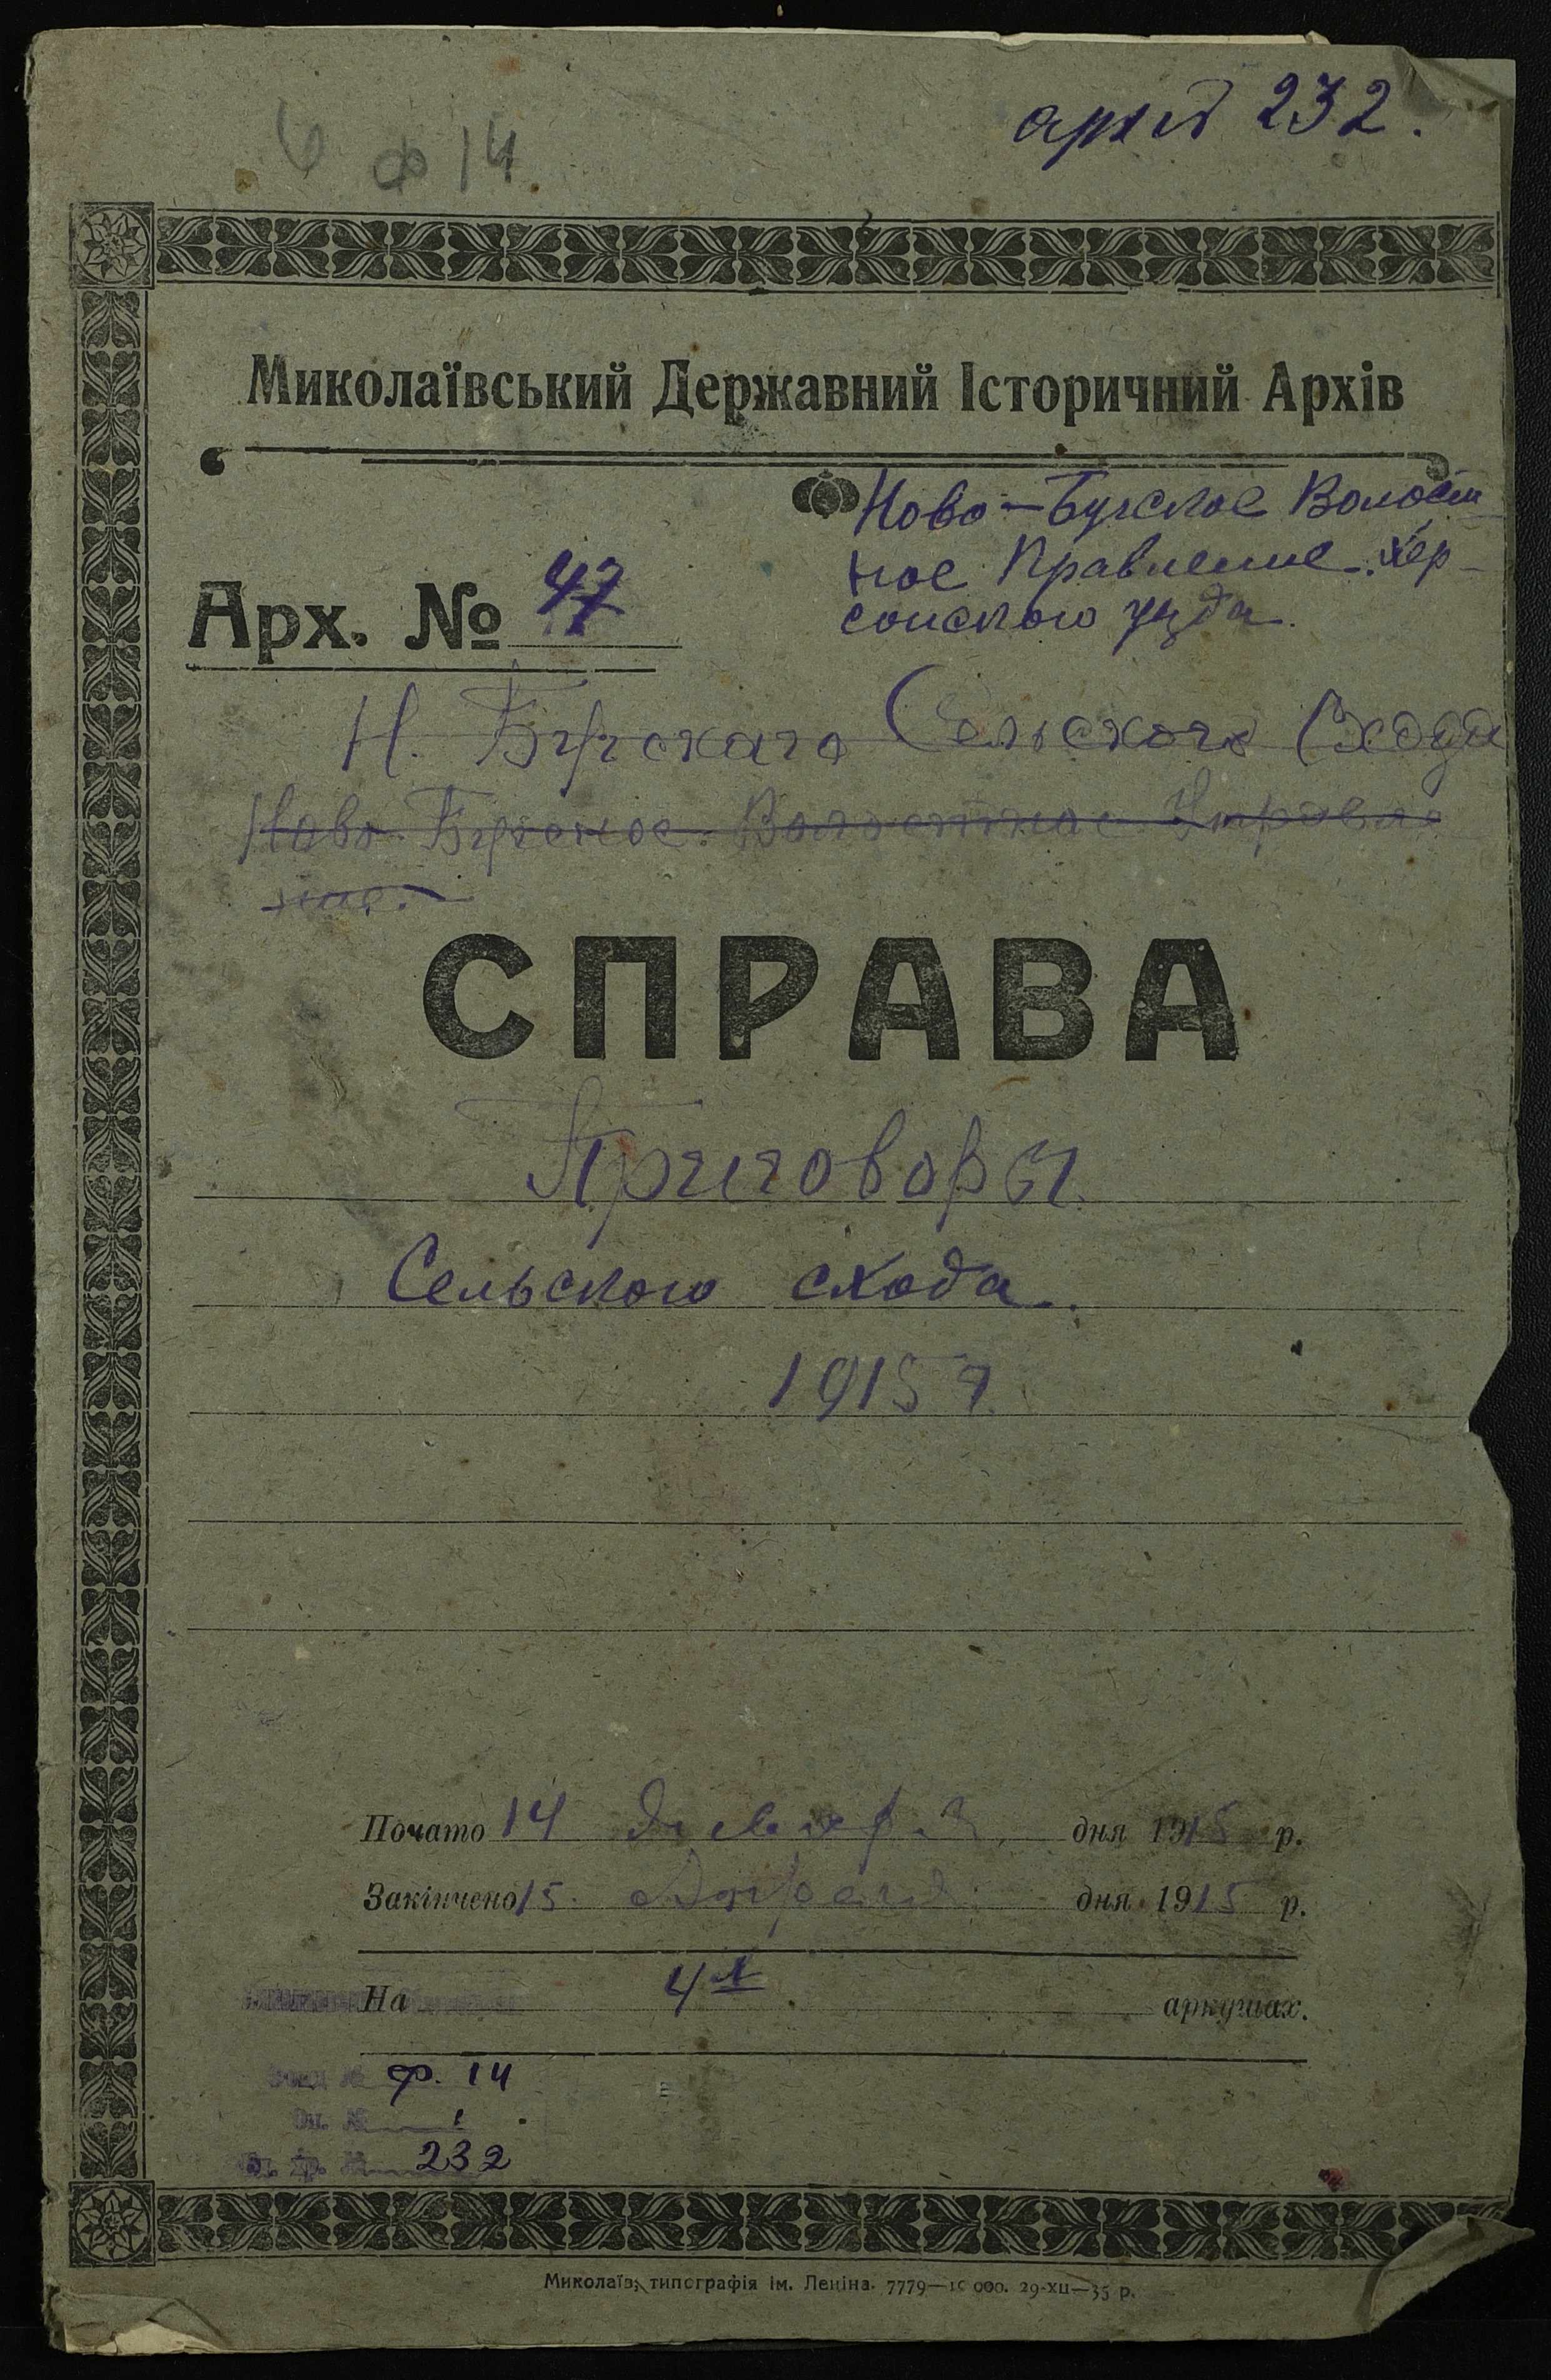 ф 14
232.
Миколаївський Державний Історичний Архів
Ново-Бугское Волост-
ное Правление. Хер-
сонского уезда.
Арх. № 47
Н. Бугскаго Сельского Схода
Ново-Бугское Волостное
СПРАВА
Приговоры
Сельского схода.
1915 г.
Почато 14 дня 1915 р.
Закінчено 15 дня 1915 р.
На 4 л аркушах.
ф. 14
Оп. № 1
232
Миколаїв, типографія ім. Леніна. 7779—10 000. 29-XII—35 р.